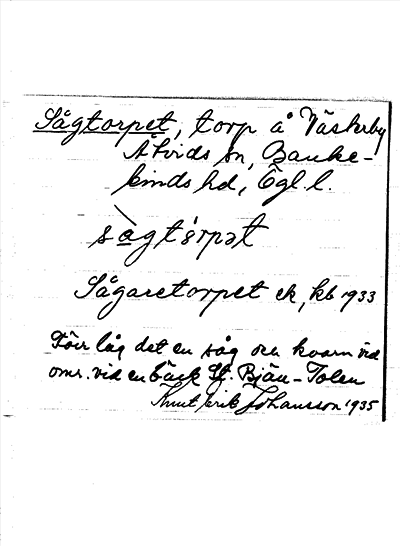 Sågtorpet, torp å Väskerby
Åtvids sn, Banke-
kinds hd, Ögl. l.
sàgtårpət
Sågaretorpet ek, kb 1933
Förr låg det en såg och kvarn vid
omr. vid en bäck St. Bjän-Tolen
Knut Erik Johansson 1935